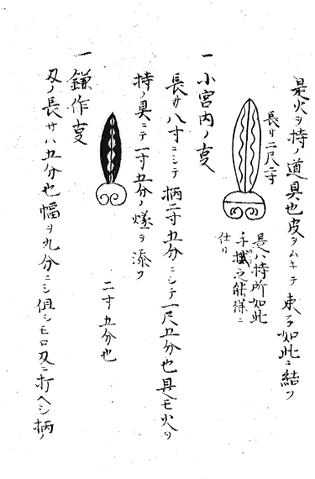 是火ヲ持ノ道具也皮ヲムキテ束子如此ニ結フ
長サ二尺二寸
是ハ持所如此
手摑之能得ニ
仕ル
一 小宮内ノ叓
長サ八寸ニシテ柄二寸五分ニシテ一尺五分也是モ火ヲ
持ノ具ニテ一寸五分ノ燧ヲ添フ
二寸五分也
一 鎌作叓
刄ノ長サハ五分也幅ヲ九分ニシ但シモロ刄ニ打ヘシ柄ノ